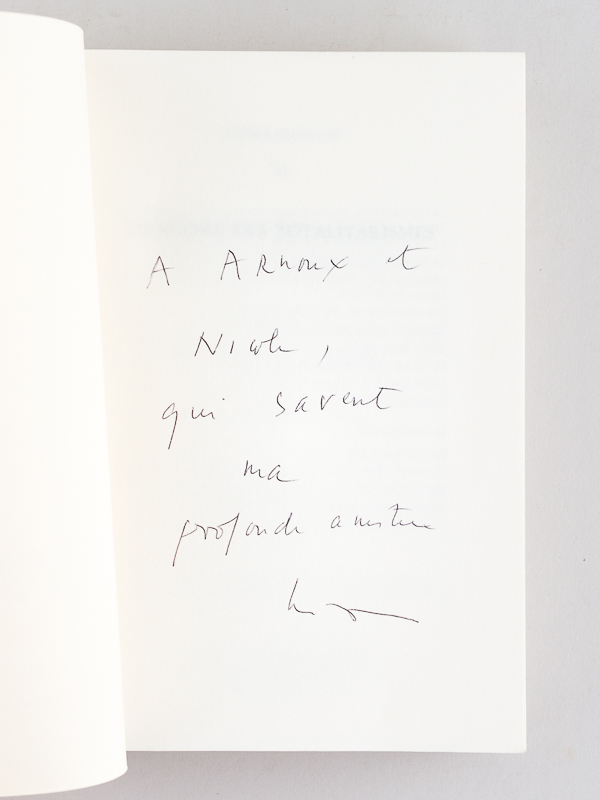 A Arnoux et
Nicole,
qui savent
ma
profonde